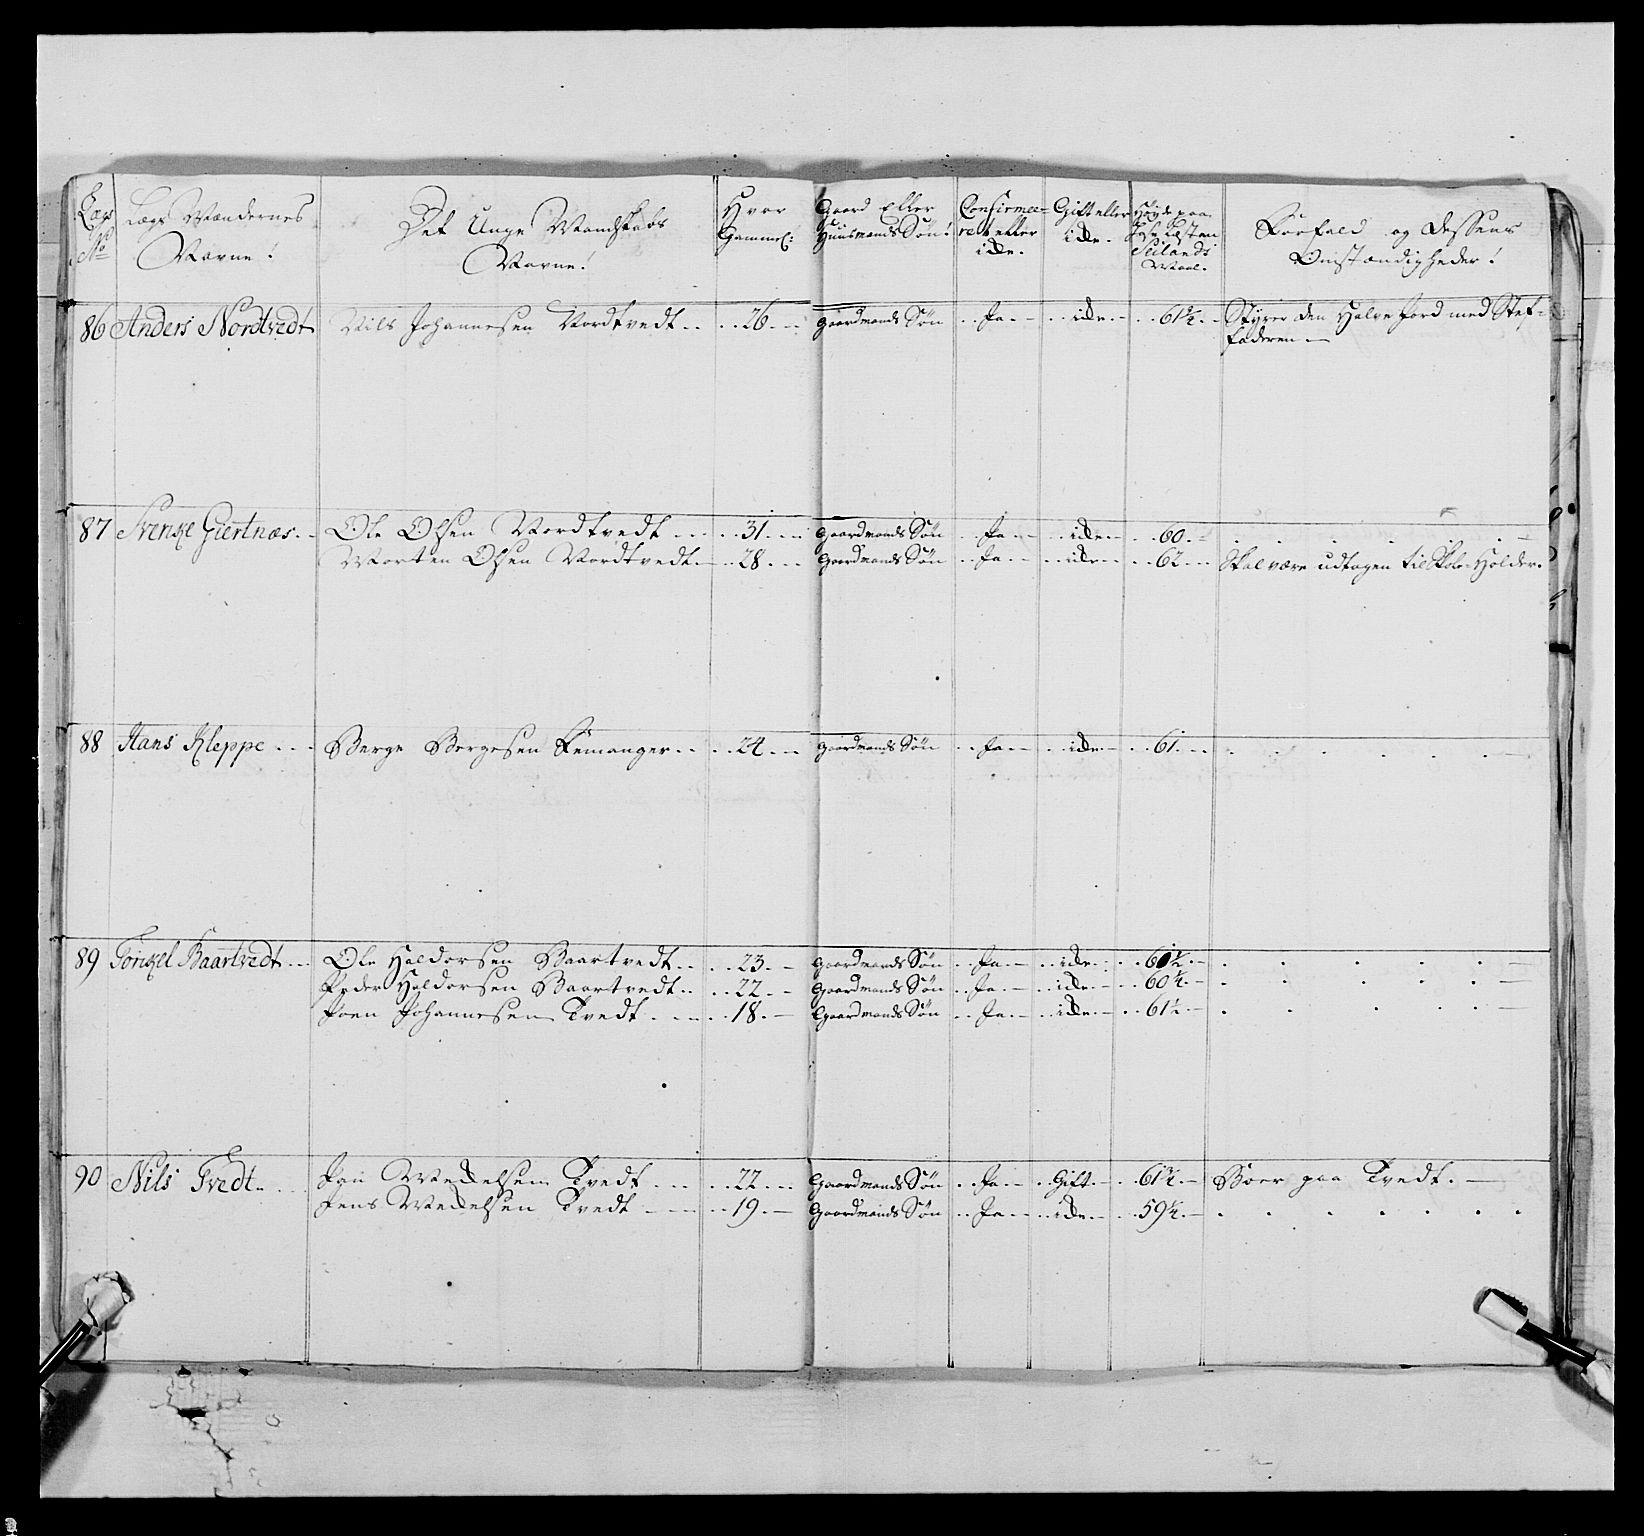 Læges No | Læges Mændernes Navne! | Det Unge Mandskabs Navne! | Hvor Gammel: | Gaard Eller Huusmands Søn! | Confirmeeret eller icke. | Gift eller icke. | Høyde paa Sielands Maal. | Forfald og dessens Omstændigheder!
86 | Anders Nordtvedt | Nils Johannesen Nordtvedt | 26 | Gaardmands Søn | Ja | icke | 61¾ | Styrer den Halve Jord med Stef-
faderen
87 | Svenke Giertnæs | Ole Olsen Nordtvedt | 31 | Gaardmands Søn | Ja | icke | 60
Morten Olsen Nordtvedt | 28 | Gaardmands Søn | Ja | icke | 62 | Skal være udtagen til Skole-Holder.
88 | Hans Kleppe | Berge Bergesen Femanger | 24 | Gaardmands Søn | Ja | icke | 61
89 | Torkel Baartvedt | Ole Haldorsen Baartvedt | 23 | Gaardmands Søn | Ja | icke
Peder Haldorsen Baartvedt | 22 | Gaardmands Søn | Ja | icke | 60¼
Joen Johannesen Tvedt | 18 | Gaardmands Søn | Ja | icke | 61½
90 | Nils Tvedt | Jan Mickelsen Tvedt | 22 | Gaardmands Søn | Ja | Gift | 61¾ | Boer paa Tvedt.
Jens Mickelsen Tvedt | 19 | Gaardmands Søn | Ja | icke | 59¼